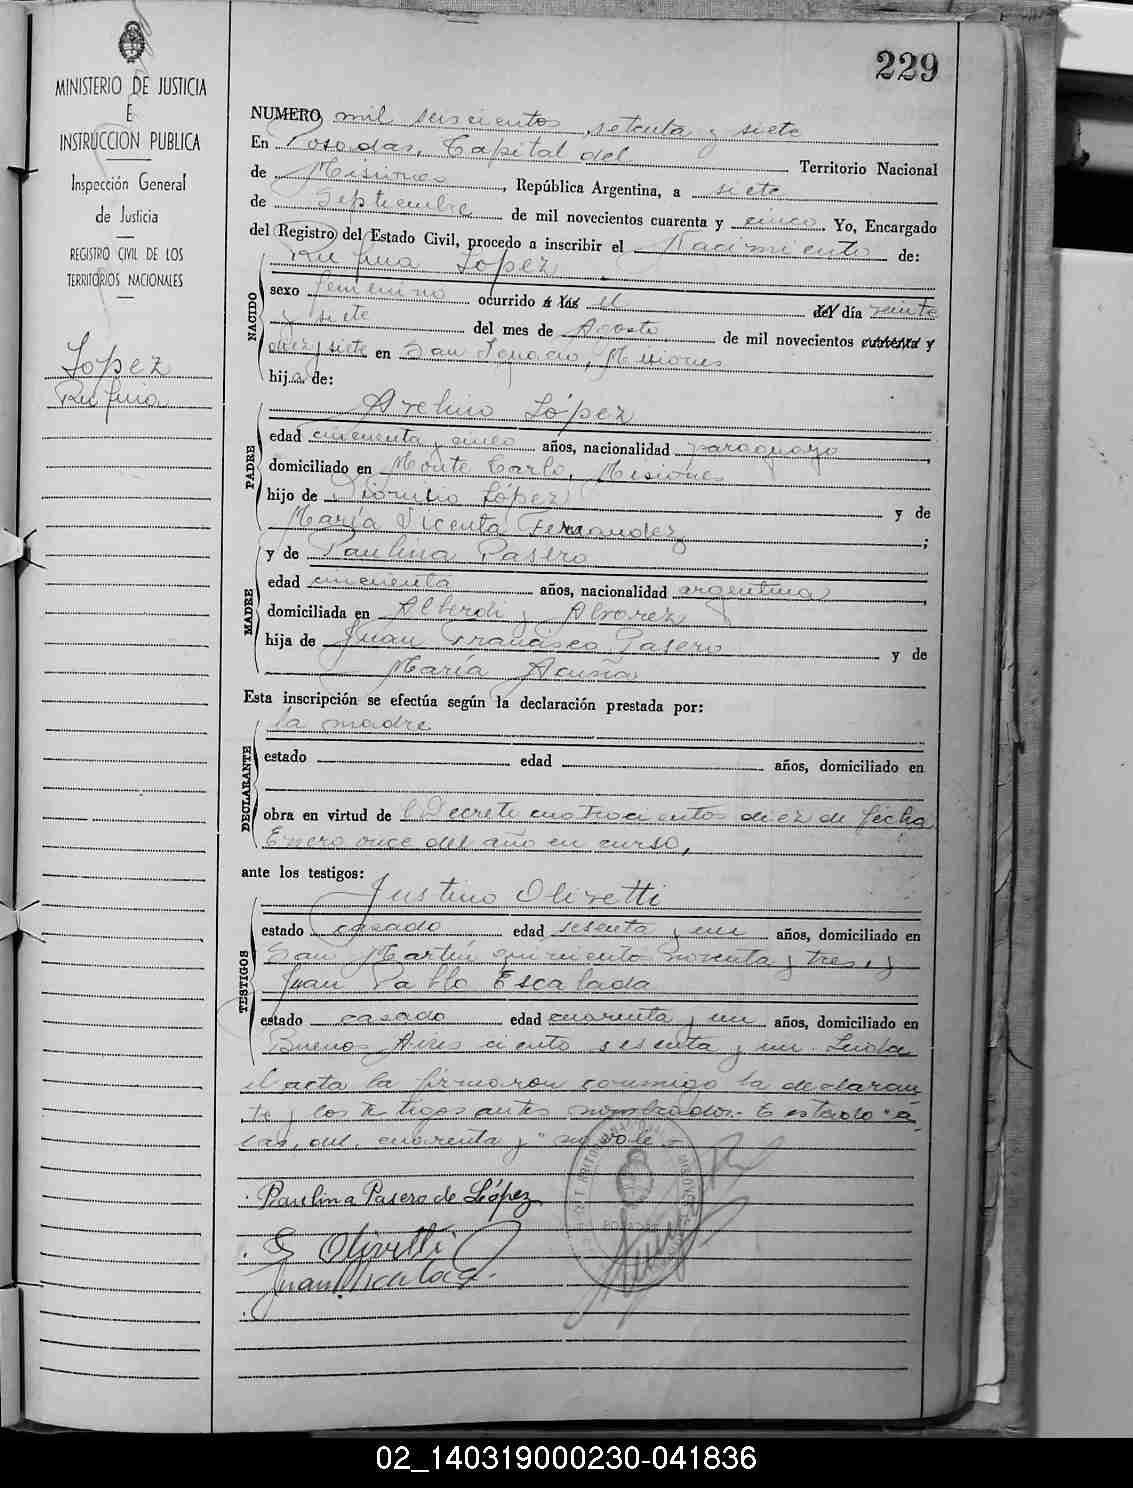 229
MINISTERIO DE JUSTICIA
E
INSTRUCCION PUBLICA
Inspección General
de Justicia
REGISTRO CIVIL DE LOS
TERRITORIOS NACIONALES
López
Rufina
NUMERO mil seiscientos setenta y siete
En Posadas, Capital del Territorio Nacional
de Misiones, República Argentina, a siete
de Septiembre de mil novecientos cuarenta y cinco Yo, Encargado
del Registro del Estado Civil, procedo a inscribir el Nacimiento de:
Rufina López
NACIDO
sexo femenino ocurrido a las el del día veinte
y siete del mes de Agosto de mil novecientos cuarenta y
diez y siete en San Ignacio, Misiones
hija de:
PADRE
Avelino López
edad cincuenta y cinco años, nacionalidad paraguayo,
domiciliado en Monte Carlo, Misiones
hijo de López y de
María Vicenta Fernandez;
MADRE
y de Paulina Pasero
edad cincuenta años, nacionalidad argentina,
domiciliada en Alberdi y Alvarez
hija de Juan Francisco Pasero y de
María Acuña
Esta inscripción se efectúa según la declaración prestada por:
DECLARANTE
la madre
estado edad años, domiciliado en
obra en virtud de l Decreto cuatrocientos diez de fecha
Enero once del año en curso,
ante los testigos:
TESTIGOS
Justino Olivetti
estado casado edad sesenta y un años, domiciliado en
San Martín quinientos noventa y tres, y
Juan Pablo Escalada
estado casado edad cuarenta y un años, domiciliado en
Buenos Aires ciento sesenta y un. Leída
el acta la firmaron conmigo la declaran
te y los testigos antes nombrados.- Testado "a
las, del, cuarenta y" no vale.-
Paulina Pasero de López
Olivetti
Juan
02_140319000230-041836